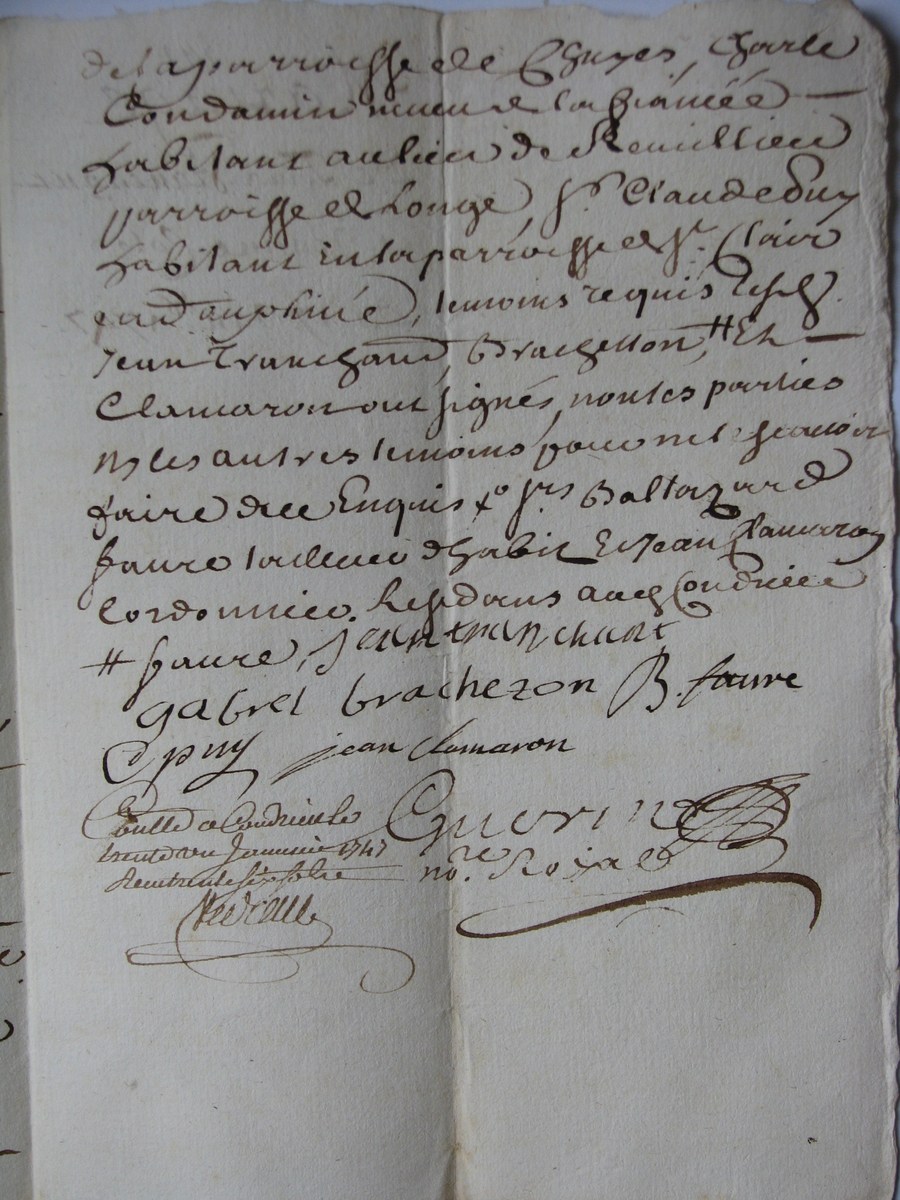 de la parroisse de Chuyes, Charle
Condamin neveu de la fiancée
habitant au lieu de Remillieu
parroisse de Longe, Sr. Claude Puy
habitant en la parroisse de St. Clair
en Dauphiné, temoins requis
Jean Tranchand, Brachesson, # Et
Clamaron ont signés, non les parties
ny les autres temoins pour ne sçavoir
faire de ce Enquis Srs Baltazard
faure tailleur d'habit Et Jean Clamaron
Cordonnier Residans aud Condrieu
# faure, jean tranchant
gabrel brachezon B. faure
C puy jean Clamaron
Guerin
Contrôllé a Condrieu le
trente un Janvier 1747
Reçu trente six sols
nore. Royal